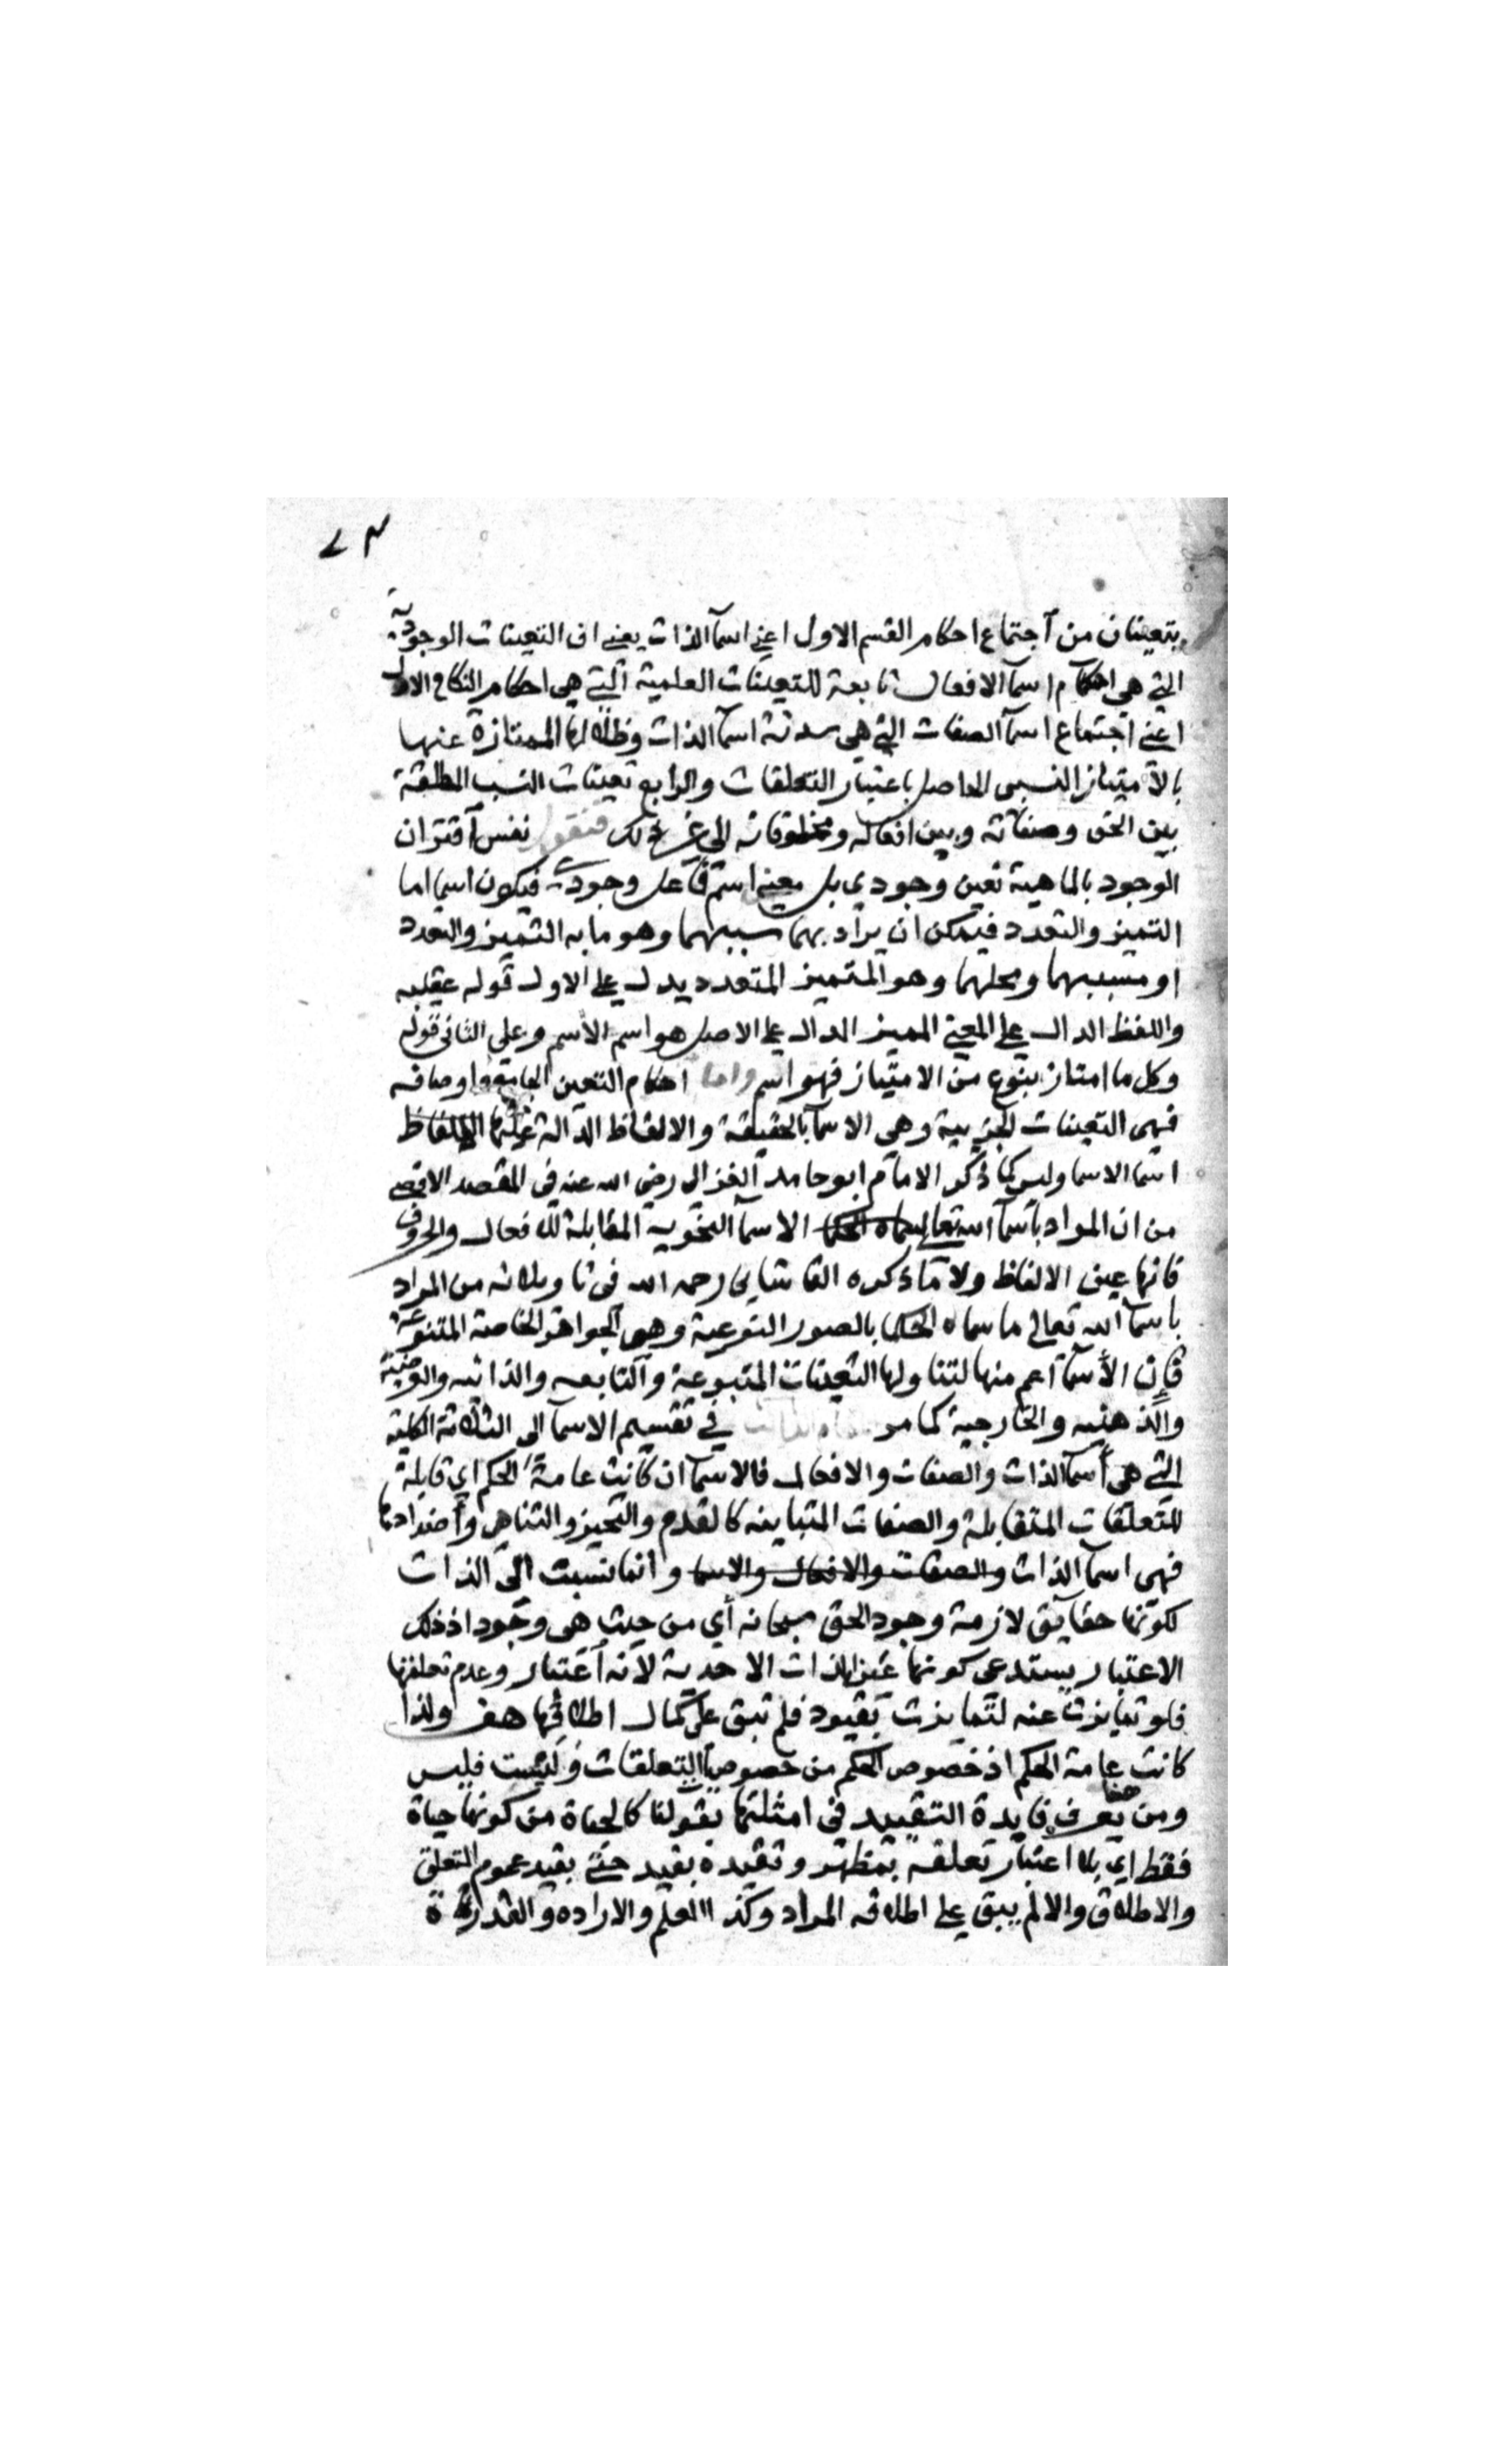 ٧٣
يتعينان من اجتماع احكام القسم الاول اعني اسمآ الذات يعني ان التعينات الوجودية
التي هي احكام اسمآ الافعال تابعة للتعينات العلمية التي هي احكام النكاح الاول
اعني اجتماع اسمآ الصفات التي هي سدنة اسمآ الذات وظلالها الممتازة عنها
بالامتياز النسبى الحاصل باعتبار التعلقات والرابع تعينات النسب المطلقة
بين الحق وصفاته وبين افعاله ومخلوقاته الى غير ذلك فنقول نفس اقتران
الوجود بالماهية تعين وجودي بل معين اسم فاعل وجودي فيكون اسما اما
التميز والتعدد فيمكن ان يراد بهما سببهما وهو ما به التميز والتعدد
او مسببهما ومحلهما وهو المتميز المتعدد يدل على الاول قوله عقيبه
واللفظ الدال على المعنى المميز الدال على الاصل هو اسم الاسم وعلى الثانى قوله
وكل ما امتاز بنوع من الامتياز فهو اسم واما احكام التعين الجامع واوصافه
فهى التعينات الجزيية وهي الاسمآ بالحقيقة والالفاظ الدالة عليها
اسما الاسما وليس كما ذكر الامام ابو حامد الغزالى رضى الله عنه في المقصد الاقصى
من ان المراد باسمآ الله تعالى الاسمآ النحوية المقابلة للافعال والحروف
فانها عين الالفاظ ولا ما ذكره القاشاني رحمه الله في تاويلاته من المراد
باسمآ الله تعالى ما سماه الحكما بالصور النوعية وهي الجواهر الخاصة المتنوعة
فإن الأسمآ اعم منها لتناولها التعينات المتبوعية والتابعيه والذاتيه والوصفية
والذهنيه والخارجية كما مر في تقسيم الاسمآ الى الثلاثة الكلية
التي هي أسمآ الذات والصفات والافعال فالاسمآ ان كانت عامة الحكم اي قابلة
للتعلقات المتقابلة والصفات المتباينه كالقدم والتحيز والتناهي وأضدادها
فهى اسمآ الذات والصفات والافعال والاسما وانما نسبت الى الذات
لكونها حقايق لازمة وجود الحق سبحانه أي من حيث هى وجود اذ ذلك
الاعتبار يستدعى كونها عين الذات الاحدية لانه اعتبار وعدم تعلقها
فلو تمايزت عنه لتمايزت بقيود فلم تبق على كمال اطلاقها هف ولذا
كانت عامة الحكم اذ خصوص الحكم من خصوص التعلقات وليست فليس
ومن هنا يعرف فايدة التقييد في امثلتها بقولنا كالحياة من كونها حياة
فقط اي بلا اعتبار تعلقه بمظهر وتقيده بقيد حتى يقيد عموم التعلق
والاطلاق والا لم يبق على اطلاقه المراد وكذا العلم والاراده والقدرة